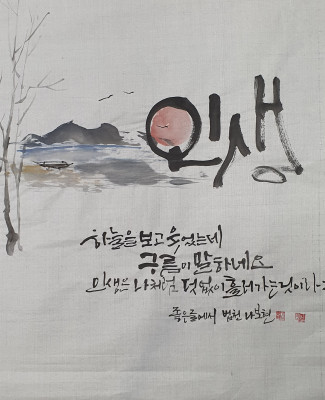 인생
하늘을 보고 웃었는데
구름이 말하네요
인생은 나처럼 덧없이 흘러가는 것이라고
좋은글에서 범천 나보현